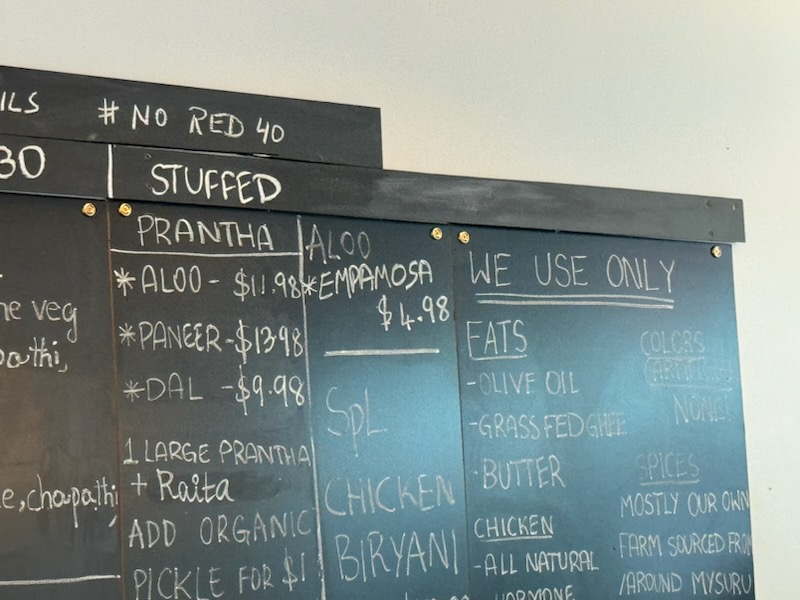 ILS # NO RED 40
30
STUFFED
he veg
pathi,
e, chapathi,
PRANTHA
*ALOO - $11.98
*PANEER - $13.98
*DAL - $9.98
1 LARGE PRANTHA
+ Raita
ADD ORGANIC
PICKLE FOR $1
ALOO
*EMPAMOSA
$4.98
SpL
CHICKEN
BIRYANI
WE USE ONLY
FATS
-OLIVE OIL
-GRASS FED GHEE
-BUTTER
CHICKEN
-ALL NATURAL
HORMONE
COLORS
NONE!
SPICES
MOSTLY OUR OWN
FARM SOURCED FROM
/AROUND MYSURU